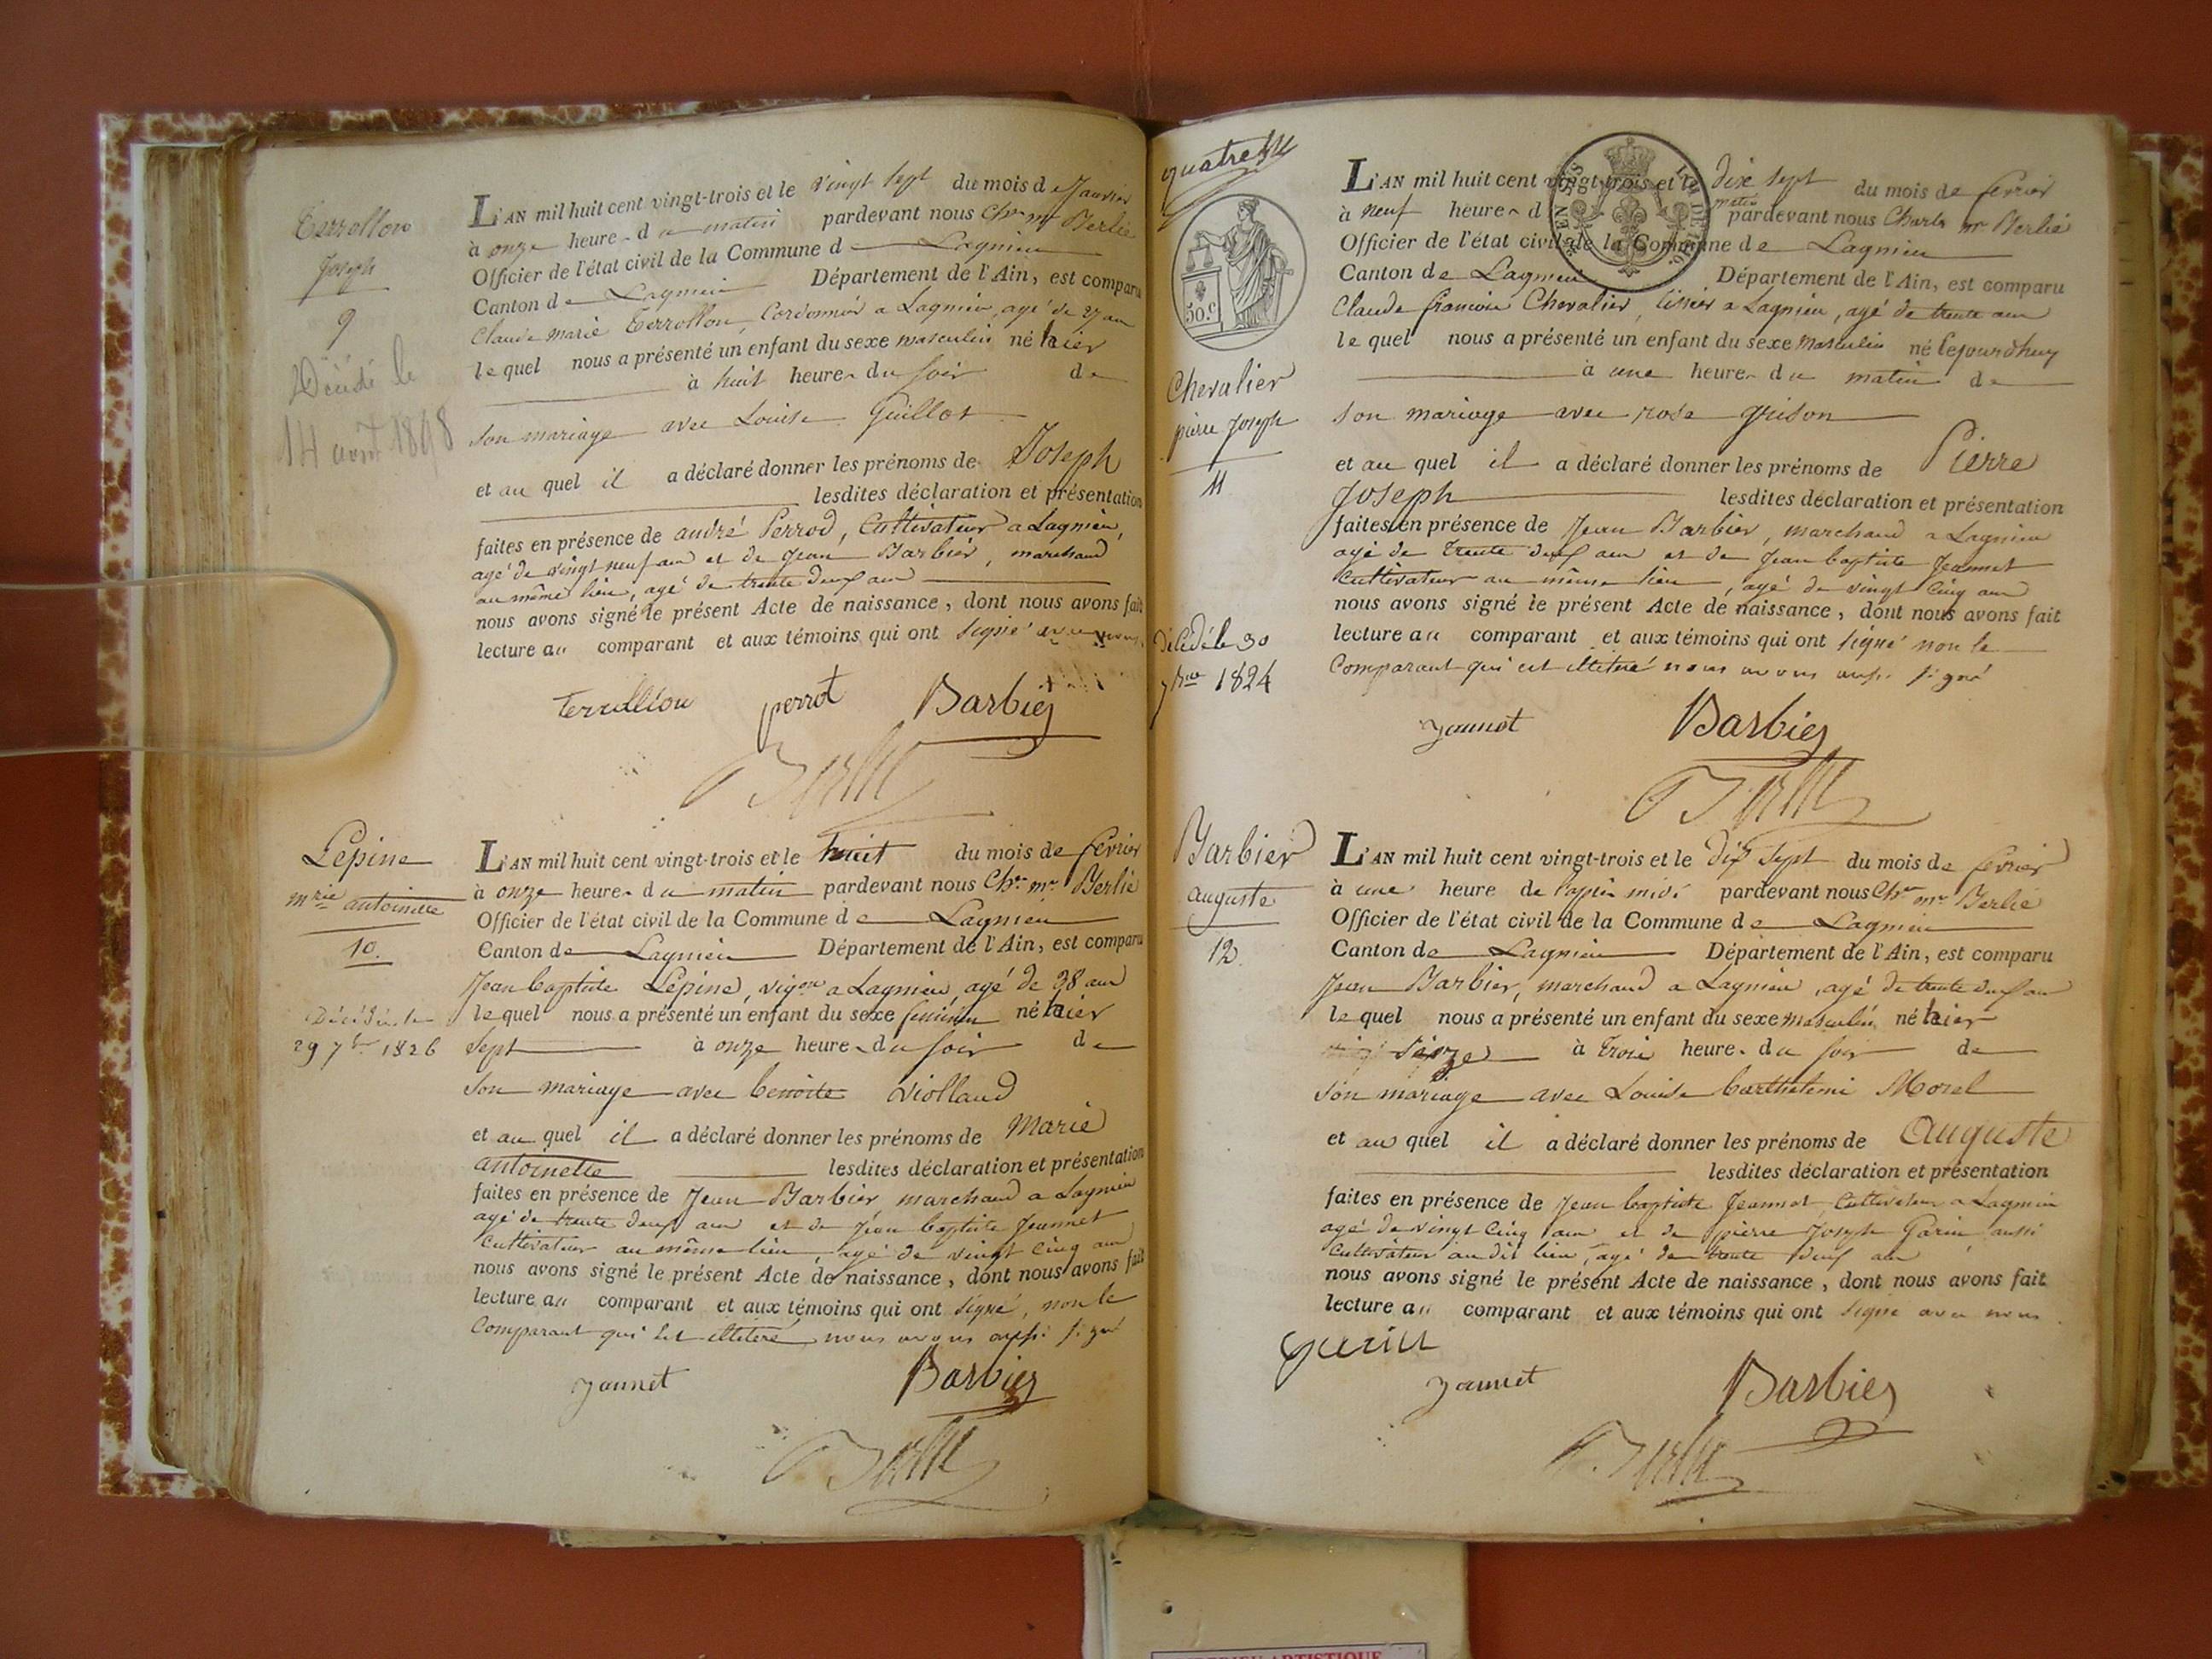 Terrollon
Joseph
9
Décédé le
14 avril 1898
L'AN mil huit cent vingt-trois et le vingt sept du mois de Janvier
à onze heures du matin pardevant nous Chs. mr. Berlié
Officier de l'état civil de la Commune de Lagnieu
Canton de Lagnieu Département de l'Ain, est comparu
Claude Marie Terrollon, Cordonnier a Lagnieu, agé de 27 ans
lequel nous a présenté un enfant du sexe masculin né hier
à huit heures du soir de
son mariage avec Louise Guillot
et au quel il a déclaré donner les prénoms de Joseph
lesdites déclaration et présentation
faites en présence de andré Perrod, Cultivateur a Lagnieu,
agé de vingt neuf ans et de Jean Barbier, marchand
au même lieu, agé de trente deux ans
nous avons signé le présent Acte de naissance, dont nous avons fait
lecture au comparant et aux témoins qui ont signé avec nous.
Terrollon perrot Barbier
Berlié
Lépine
mrie antoinette
10.
Décédée le
29 7bre 1826
L'AN mil huit cent vingt-trois et le huit du mois de fevrier
à onze heures du matin pardevant nous Chs. mr. Berlié
Officier de l'état civil de la Commune de Lagnieu
Canton de Lagnieu Département de l'Ain, est comparu
Jean baptiste Lépine, vigon a Lagnieu, agé de 38 ans
lequel nous a présenté un enfant du sexe feminin né hier
sept à onze heures du soir de
son mariage avec benoite Violland
et au quel il a déclaré donner les prénoms de Marie
antoinette lesdites déclaration et présentation
faites en présence de Jean Barbier marchand a Lagnieu
agé de trente deux ans et de Jean baptiste Jeannet
Cultivateur au même lieu, agé de vingt cinq ans
nous avons signé le présent Acte de naissance, dont nous avons fait
lecture au comparant et aux témoins qui ont signé, non le
Comparant qui est illiteré nous avons aussi signé
Jannet Barbier
Berlié
quatre
50.c
Chevalier
pierre Joseph
11
décédé le 30
7bre 1824
L'AN mil huit cent vingt-trois et le dix sept du mois de fevrier
à neuf heures d matin pardevant nous Charls mr Berlié
Officier de l'état civil de la Commune de Lagnieu
Canton de Lagnieu Département de l'Ain, est comparu
Claude francois Chevalier, tissier a Lagnieu, agé de trente ans
lequel nous a présenté un enfant du sexe masculin né Cejourdhuy
à une heures du matin de
son mariage avec rose grison
et au quel il a déclaré donner les prénoms de Pierre
Joseph lesdites déclaration et présentation
faites en présence de Jean Barbier, marchand a Lagnieu
agé de trente deux ans et de Jean baptiste Jeannet
Cultivateur au même lieu, agé de vingt Cinq ans
nous avons signé le présent Acte de naissance, dont nous avons fait
lecture au comparant et aux témoins qui ont signé non le
Comparant qui est illiteré nous avons aussi signé
Jannet Barbier
Berlié
Barbier
auguste
12.
L'AN mil huit cent vingt-trois et le dix sept du mois de fevrier
à une heure de l'après midi pardevant nous Chs mr Berlié
Officier de l'état civil de la Commune de Lagnieu
Canton de Lagnieu Département de l'Ain, est comparu
Jean Barbier, marchand a Lagnieu, agé de trente deux ans
lequel nous a présenté un enfant du sexe masculin né hier
seize à trois heures du soir de
son mariage avec Louise barthelemi Morel
et au quel il a déclaré donner les prénoms de Auguste
lesdites déclaration et présentation
faites en présence de Jean baptiste Jeannet, Cultivateur a Lagnieu
agé de vingt Cinq ans et de pierre Joseph Garin aussi
Cultivateur au dit lieu, agé de trente neuf ans
nous avons signé le présent Acte de naissance, dont nous avons fait
lecture au comparant et aux témoins qui ont signé avec nous
Jannet Barbier
Berlié
ARTISTIQUE